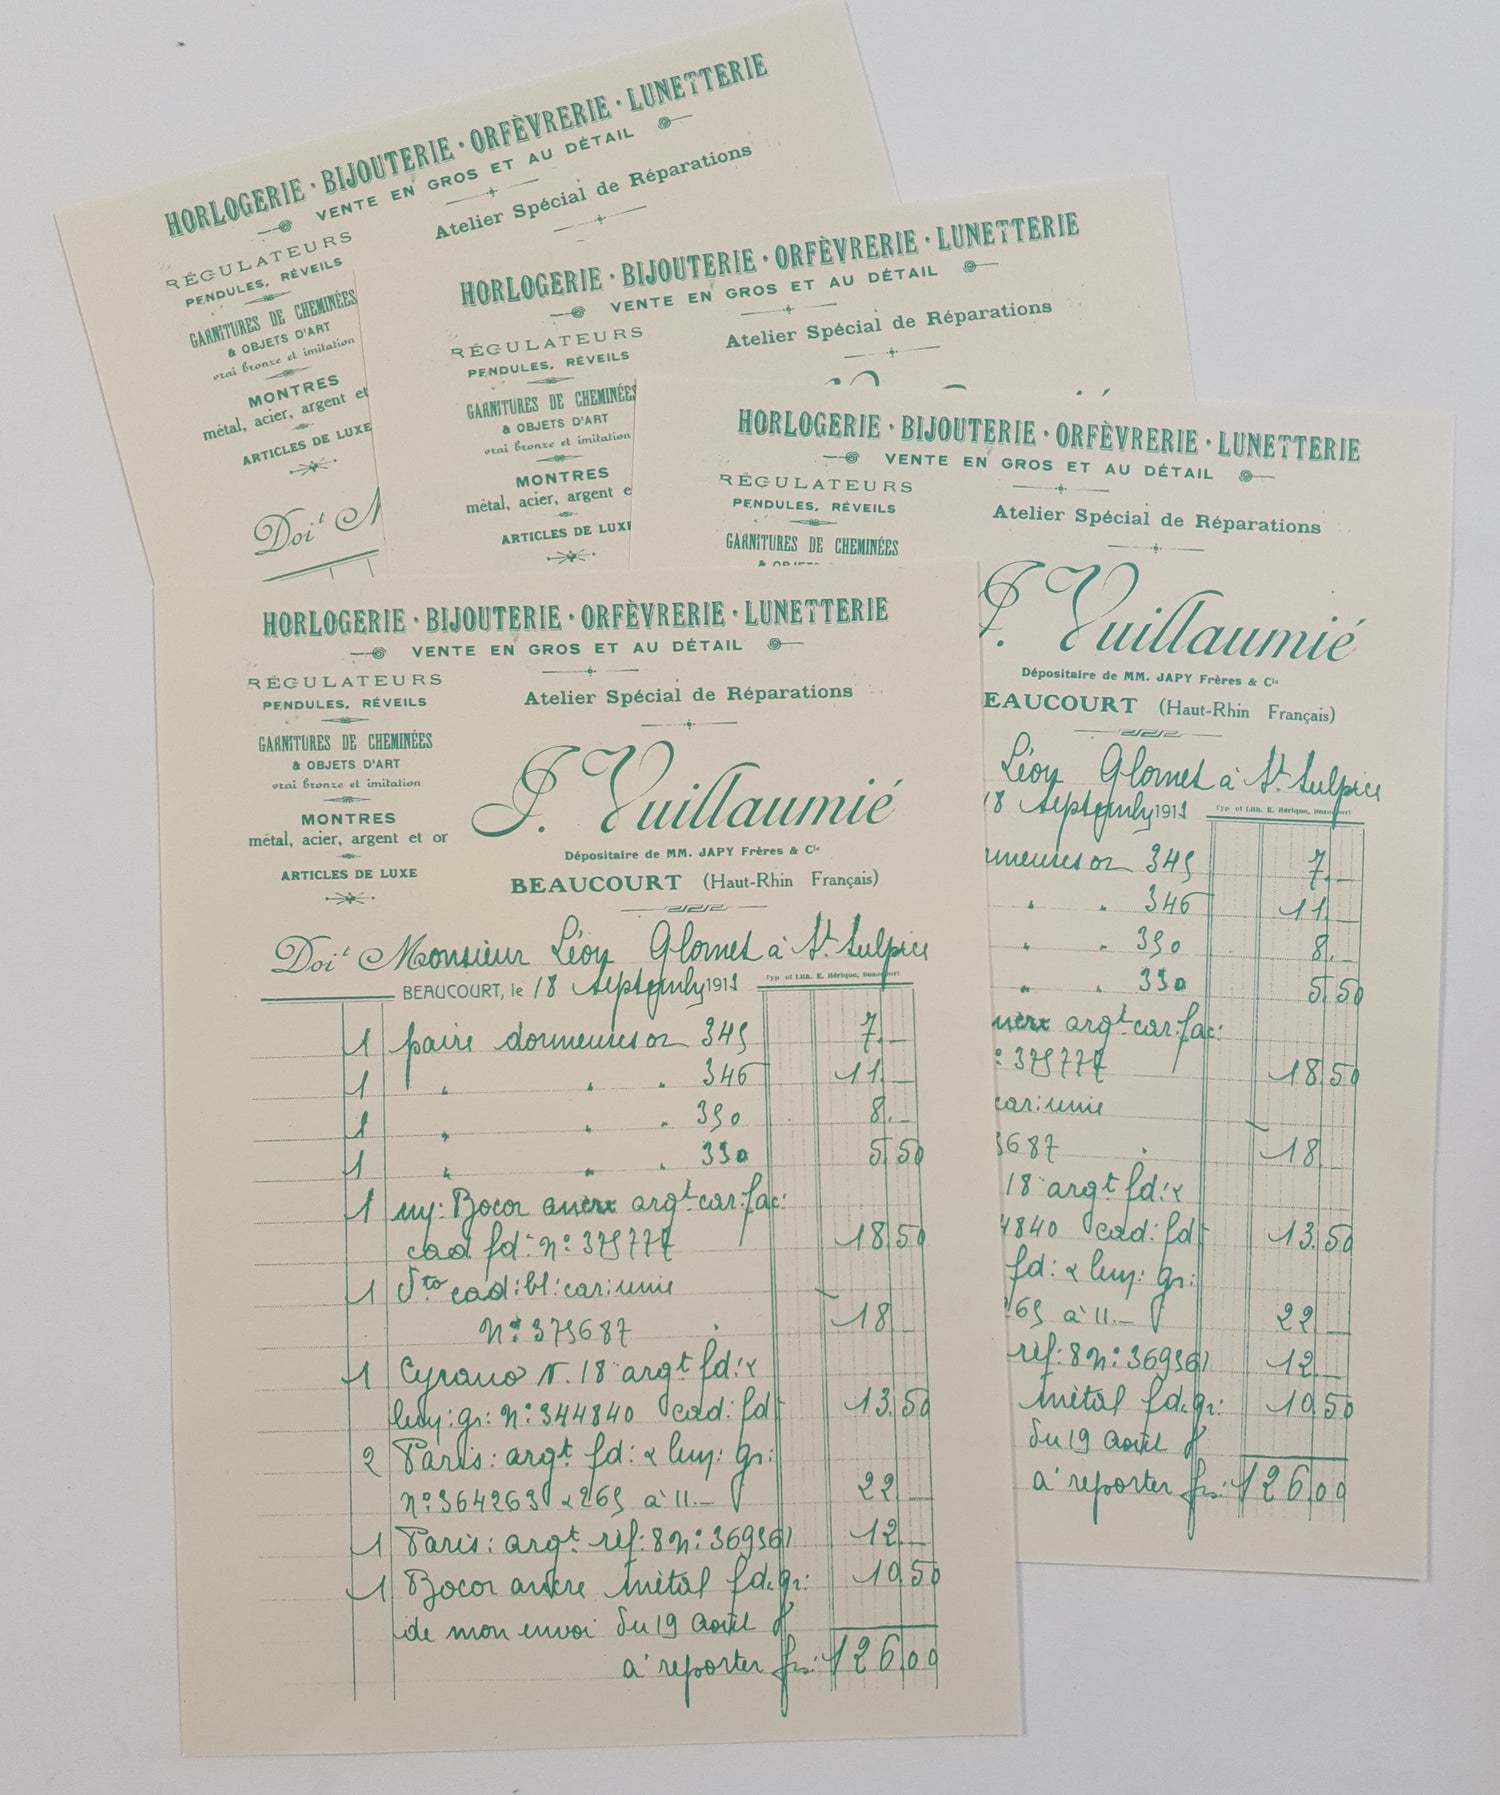 HORLOGERIE · BIJOUTERIE · ORFÈVRERIE · LUNETTERIE
VENTE EN GROS ET AU DÉTAIL
RÉGULATEURS
PENDULES, RÉVEILS
Atelier Spécial de Réparations
GARNITURES DE CHEMINÉES
& OBJETS D'ART
vrai bronze et imitation
MONTRES
métal, acier, argent et
ARTICLES DE LUXE
Doit M
HORLOGERIE · BIJOUTERIE · ORFÈVRERIE · LUNETTERIE
VENTE EN GROS ET AU DÉTAIL
RÉGULATEURS
PENDULES, RÉVEILS
Atelier Spécial de Réparations
GARNITURES DE CHEMINÉES
& OBJETS D'ART
vrai bronze et imitation
MONTRES
métal, acier, argent e
ARTICLES DE LUXE
HORLOGERIE · BIJOUTERIE · ORFÈVRERIE · LUNETTERIE
VENTE EN GROS ET AU DÉTAIL
RÉGULATEURS
PENDULES, RÉVEILS
Atelier Spécial de Réparations
GARNITURES DE CHEMINÉES
J. Vuillaumié
Dépositaire de MM. JAPY Frères & Cie
EAUCOURT (Haut-Rhin Français)
Léon Glomet à St. Sulpice
18 1911
Typ et Lith. E. Hérique, Beaucourt
or 345 7.—
" " 346 11.—
" " 350 8.—
" " 330 5.50
argt car: fac:
18.50
car: unie
5687 18.—
18 argt fd: &
4840 cad: fd 13.50
fd: & gr:
265 à 11.— 22.—
ref: 8 n: 369361 12.—
métal fd. gr: 10.50
du 19 août
à reporter frs: 126.00
HORLOGERIE · BIJOUTERIE · ORFÈVRERIE · LUNETTERIE
VENTE EN GROS ET AU DÉTAIL
RÉGULATEURS
PENDULES, RÉVEILS
Atelier Spécial de Réparations
GARNITURES DE CHEMINÉES
& OBJETS D'ART
vrai bronze et imitation
MONTRES
métal, acier, argent et or
ARTICLES DE LUXE
J. Vuillaumié
Dépositaire de MM. JAPY Frères & Cie
BEAUCOURT (Haut-Rhin Français)
Doit Monsieur Léon Glomet à St. Sulpice
BEAUCOURT, le 18 1911
Typ et Lith. E. Hérique, Beaucourt
1 paire dormeuses or 345 7.—
1 " " " 346 11.—
1 " " " 350 8.—
1 " " " 330 5.50
1 Bocor ancre argt car: fac:
cad fd: n: 18.50
1 cad: bl: car: unie
N: 375687 18.—
1 Cyrano N. 18 argt fd: &
gr: N: 344840 cad: fd 13.50
2 Paris: argt fd: & gr:
n: & 265 à 11.— 22.—
1 Paris: argt ref: 8 n: 369361 12.—
1 Bocor ancre métal fd. gr: 10.50
de mon envoi du 19 août
à reporter frs: 126.00